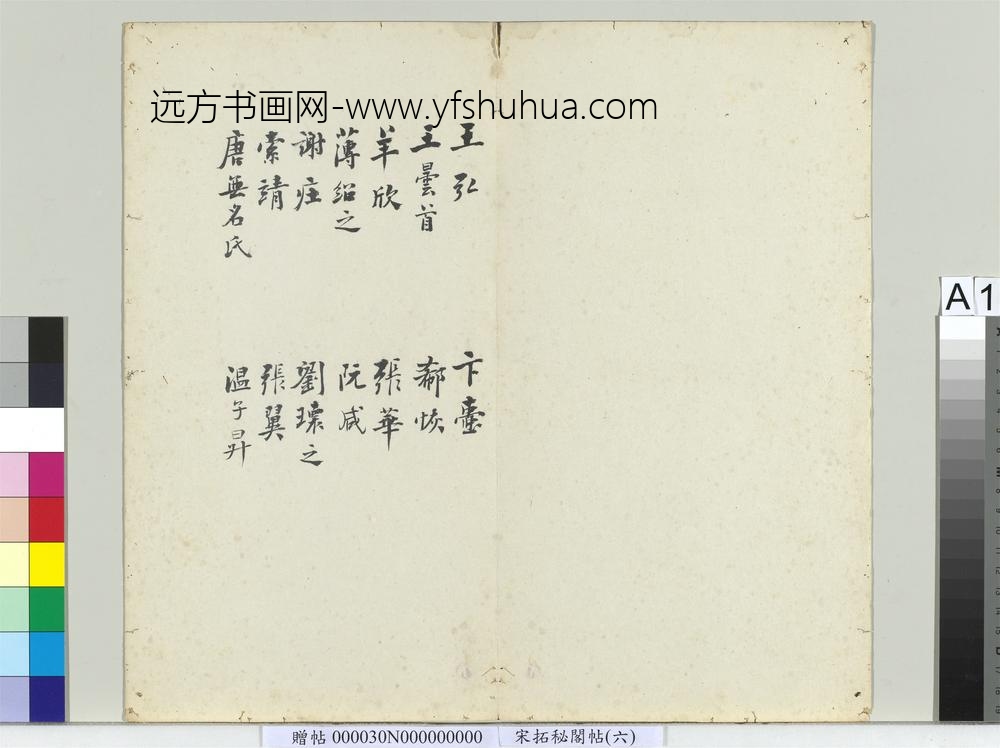 远方书画网-www.yfshuhua.com
王弘
卞壷
王曇首
郗恢
羊欣
張華
薄紹之
阮咸
謝庄
劉瓌之
索靖
張翼
唐無名氏
温子昇
A 1
贈帖 000030N000000000 宋拓秘閣帖(六)